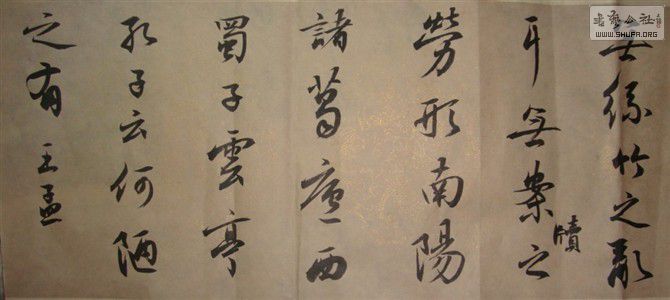 無絲竹之亂
耳無案牘之
勞形南陽
諸葛廬西
蜀子雲亭
孔子云何陋
之有 王孟
書藝公社
WWW.SHUFA.ORG